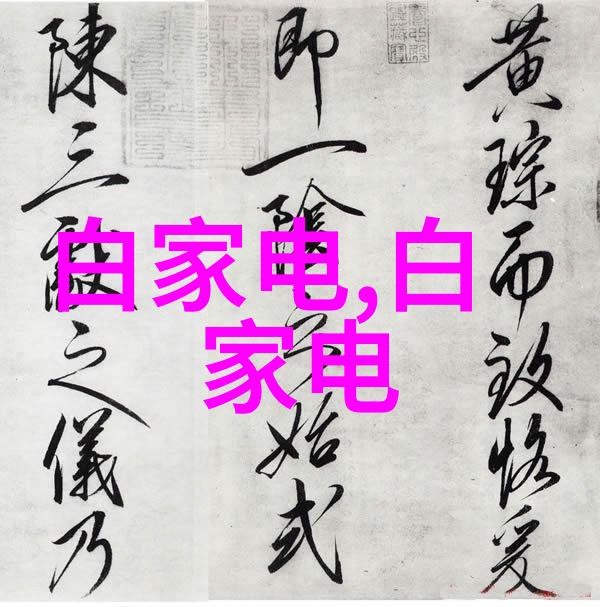 黃琮而致恪爰
即一陰始式
陳三獻之儀乃
白家电,白
家电